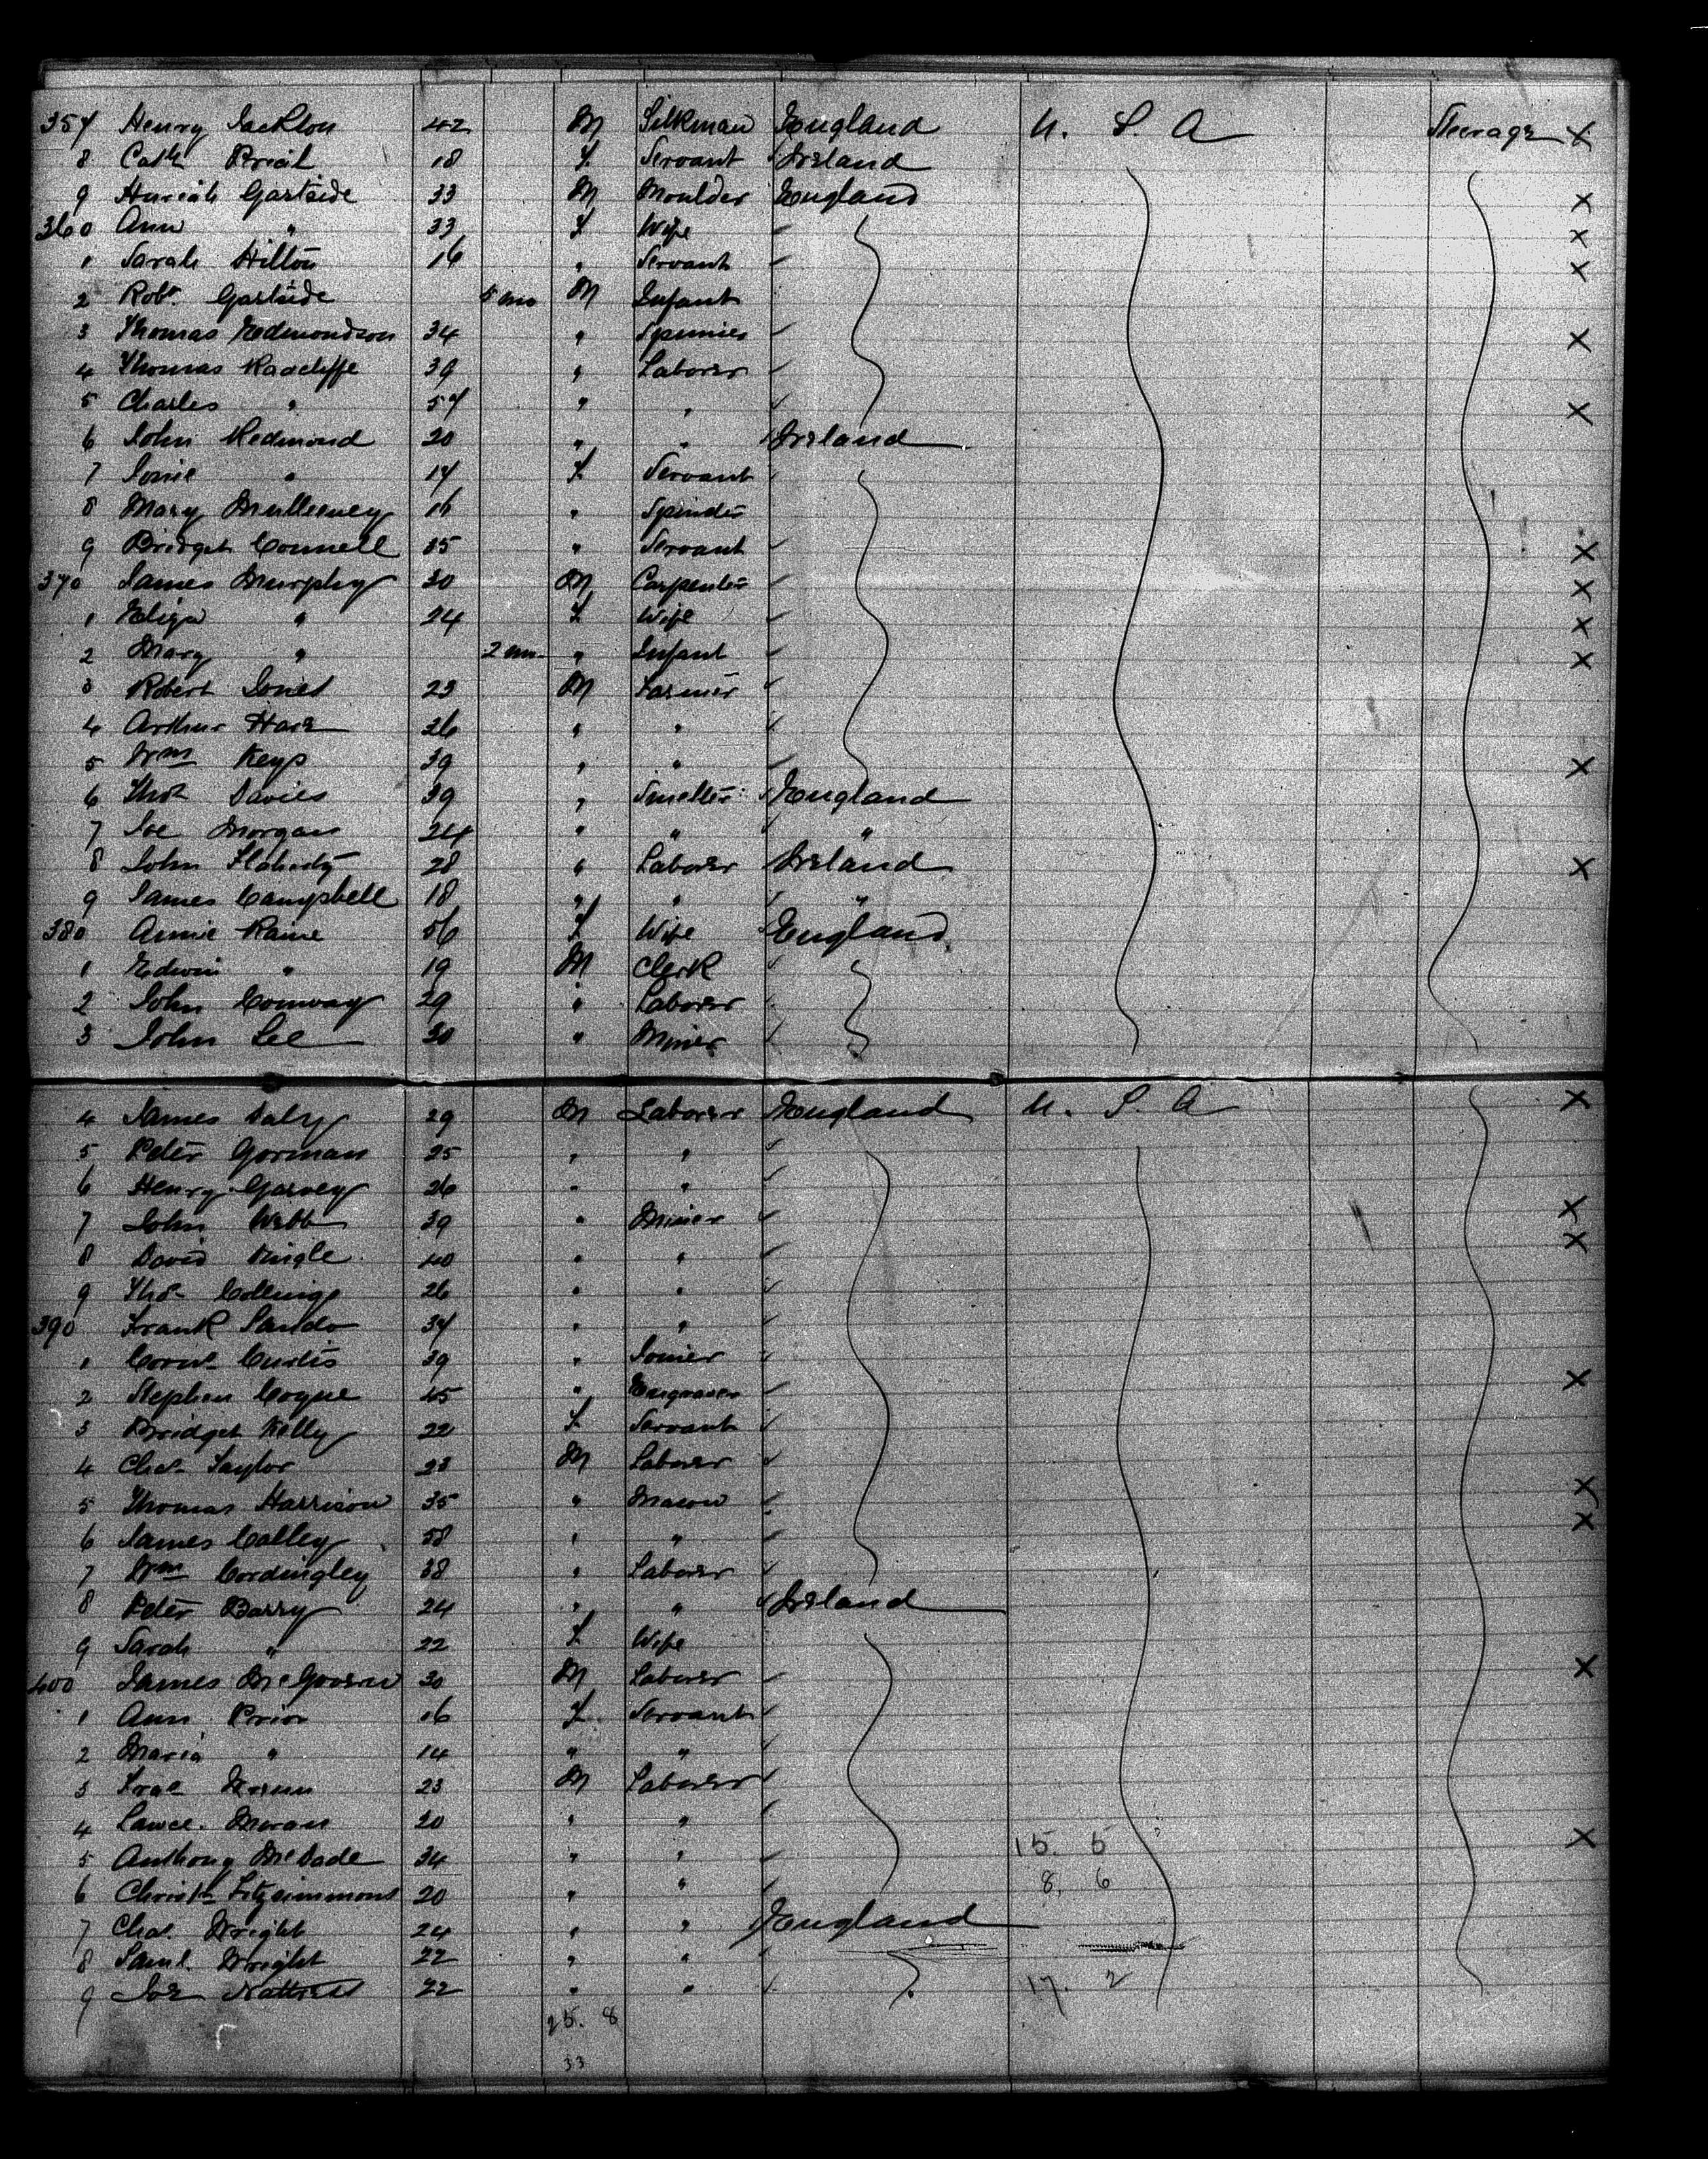 357 Henry Jackson 42 M Silkman England U. S. A Steerage X
8 Cath Breil 18 F Servant Ireland
9 Huriah Gartside 33 M Moulder England X
360 Ann " 33 F Wife X
1 Sarah Hilton 16 " Servant X
2 Robt Gartside 5 mo M Infant
3 Thomas Edmondson 34 " Spinner X
4 Thomas Radcliffe 39 " Laborer
5 Charles " 57 " " X
6 John Redmond 20 " " Ireland
7 " 17 F Servant
8 Mary Mulleeney 16 " Spinder
9 Bridget Connell 15 " Servant X
370 James Murphy 30 M Carpenter X
1 Eliza " 24 F Wife X
2 Mary " 2 mo. " Infant X
3 Robert Jones 23 M Farmer
4 Arthur Hare 26 " "
5 Wm Keys 39 " " X
6 Thos Davies 39 " Smelter England
7 Joe Morgan 24 " " "
8 John Flaherty 28 " Laborer Ireland X
9 James Campbell 18 " " "
380 Annie Raine 56 F Wife England
1 Edwin " 19 M Clerk
2 John Conway 29 " Laborer
3 John Lee 30 " Miner
4 James Daly 29 M Laborer England U. S. A X
5 Peter Gorman 25 " "
6 Henry Garvey 26 " "
7 John Webb 39 " Miner X
8 David Kingle 40 " " X
9 Thos Collings 26 " "
390 Frank Sando 37 " "
1 Corns Curtis 39 " Joiner
2 Stephen Coyne 45 " Engraver X
3 Bridget Kelly 22 F Servant
4 Chas Taylor 23 M Laborer
5 Thomas Harrison 35 " Mason X
6 James Calley 58 " " X
7 Wm Cordingley 38 " Laborer
8 Peter Barry 24 " " Ireland
9 Sarah " 22 F Wife
400 James McGovern 30 M Laborer X
1 Ann Prior 16 F Servant
2 Maria " 14 " "
3 23 M Laborer
4 Lawce. Moran 20 " "
5 Anthony McDade 34 " " 15. 5 X
6 Christr Fitzsimmons 20 " " 8. 6
7 Chas. Wright 24 " " England
8 Saml. Wright 22 " "
9 Joe Nattress 22 " " 17. 2
25. 8
33